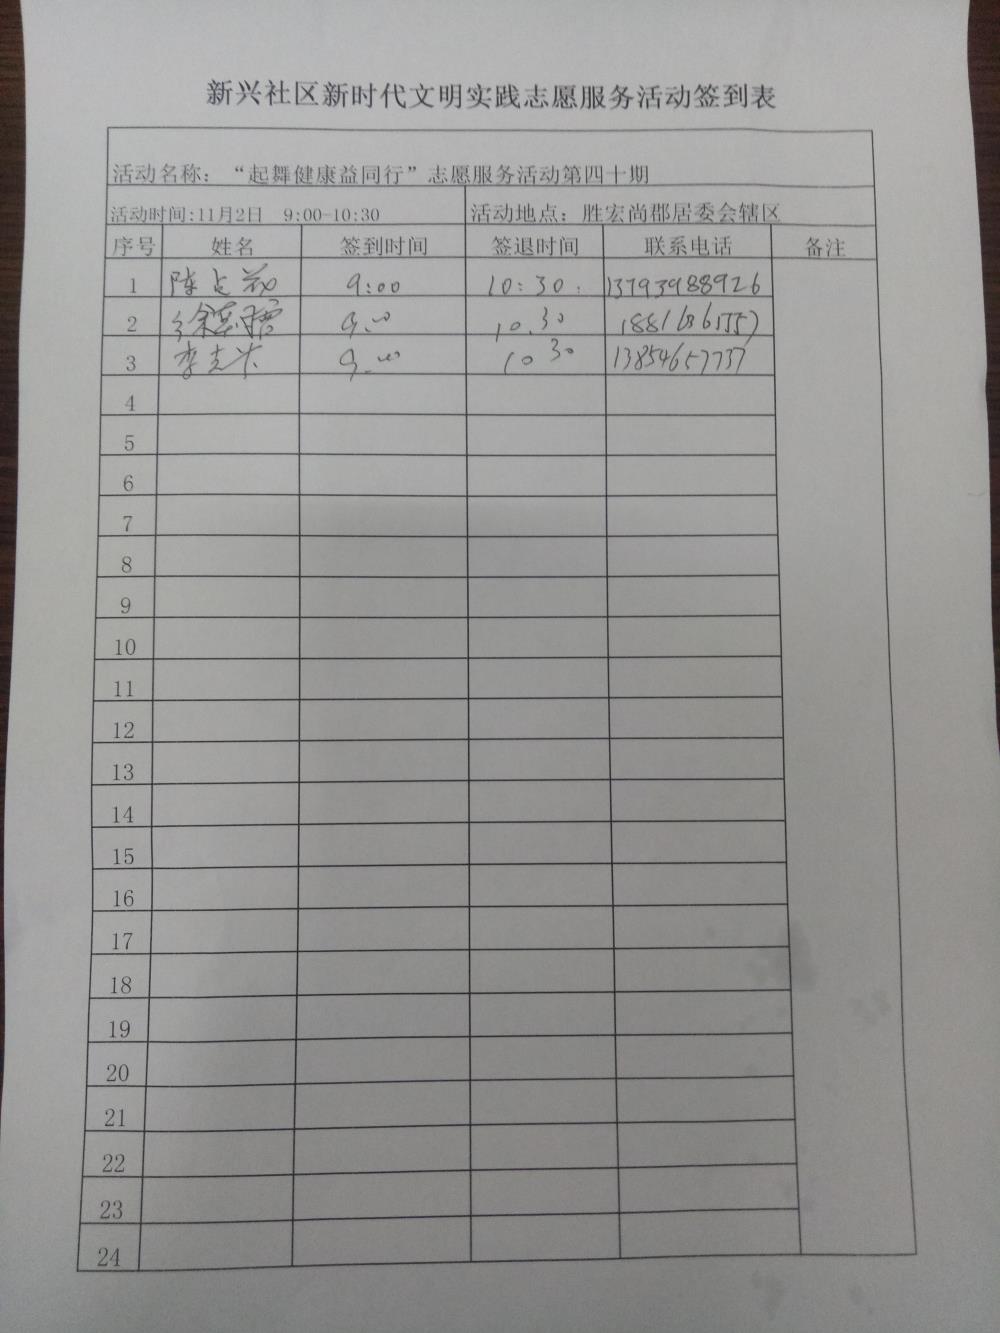 新兴社区新时代文明实践志愿服务活动签到表
活动名称：“起舞健康益同行”志愿服务活动第四十期
活动时间:11月2日 9:00-10:30 活动地点：胜宏尚郡居委会辖区
序号 姓名 签到时间 签退时间 联系电话 备注
1 陈 9:00 10:30 13793988926
2 9.00 10.30
3 李 9.00 10 30 13854657737
4
5
6
7
8
9
10
11
12
13
14
15
16
17
18
19
20
21
22
23
24